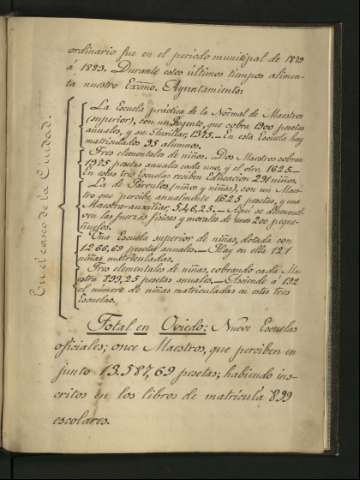 ordinario fue en el periodo municipal de 1879
á 1883. Durante estos últimos tiempos alimen-
ta nuestro Excmo. Ayuntamiento:
En el casco de la Ciudad.
La Escuela práctica de la Normal de Maestros
(superior), con un Regente, que cobra 1900 pesetas
anuales, y un Auxiliar, 1375.— En esta Escuela hay
matriculados 95 alumnos.
Tres elementales de niños. Dos Maestros cobran
1975 pesetas anuales cada uno, y el otro, 1625.—
En estas tres Escuelas reciben Educación 291 niños.
La de Párvulos (niños y niñas), con un Maes-
tro que percibe anualmente 1625 pesetas, y una
Maestra-auxiliar, 546,25.— Aquí se desenvuel-
ven las fuerzas físicas y morales de unos 200 peque-
ñuelos.
Una Escuela superior de niñas, dotada con
1266,69 pesetas anuales.— Hay en ella 121
niñas matriculadas.
Tres elementales de niñas, cobrando cada Ma-
estra 799,25 pesetas anuales.— Asciende á 192
el número de niñas matriculadas en estas tres
Escuelas.
Total en Oviedo: Nueve Escuelas
oficiales; once Maestros, que perciben en
junto 13.587,69 pesetas; habiendo ins-
critos en los libros de matrícula 899
escolares.